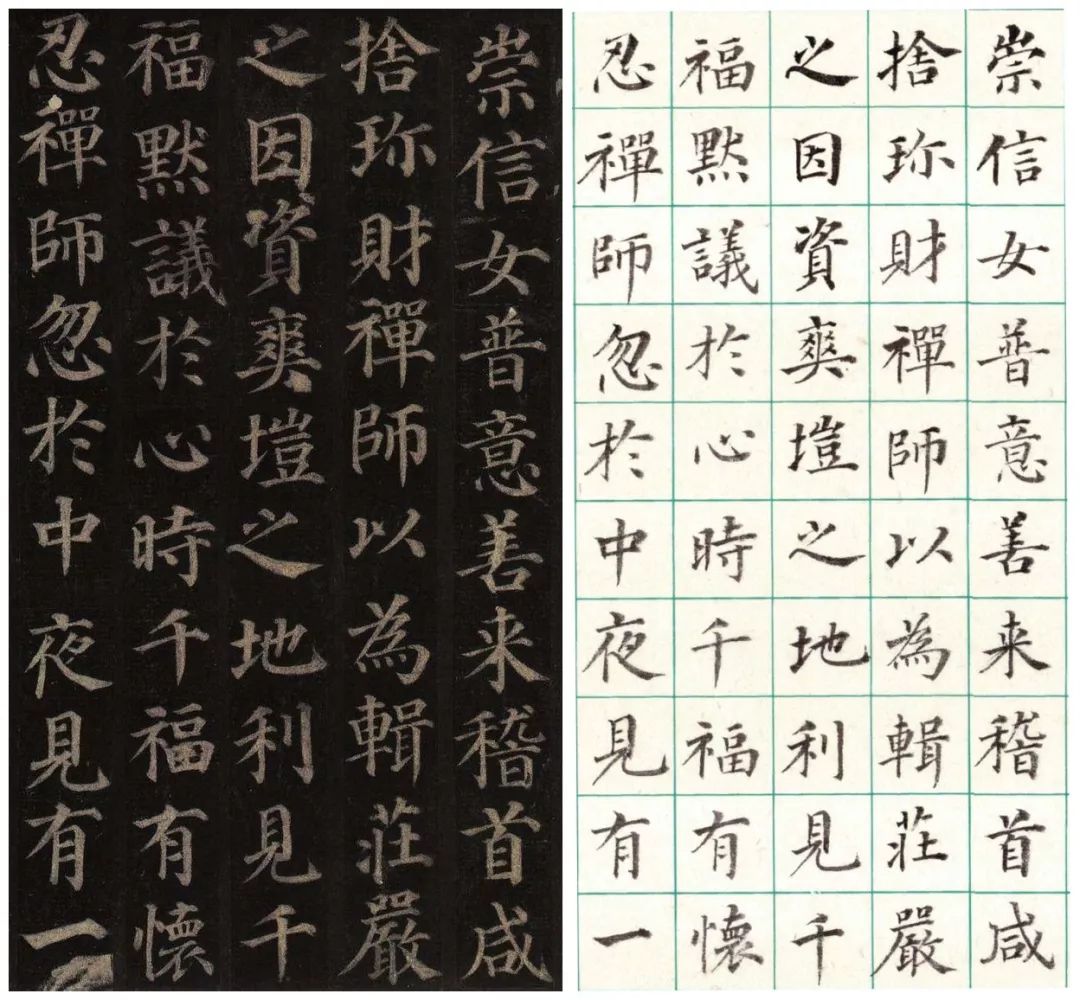 崇信女普意善来稽首咸
捨珎財禪師以為輯莊嚴
之因資爽塏之地利見千
福默議於心時千福有懷
忍禪師忽於中夜見有一
崇信女普意善来稽首咸
捨珎財禪師以為輯莊嚴
之因資爽塏之地利見千
福默議於心時千福有懷
忍禪師忽於中夜見有一